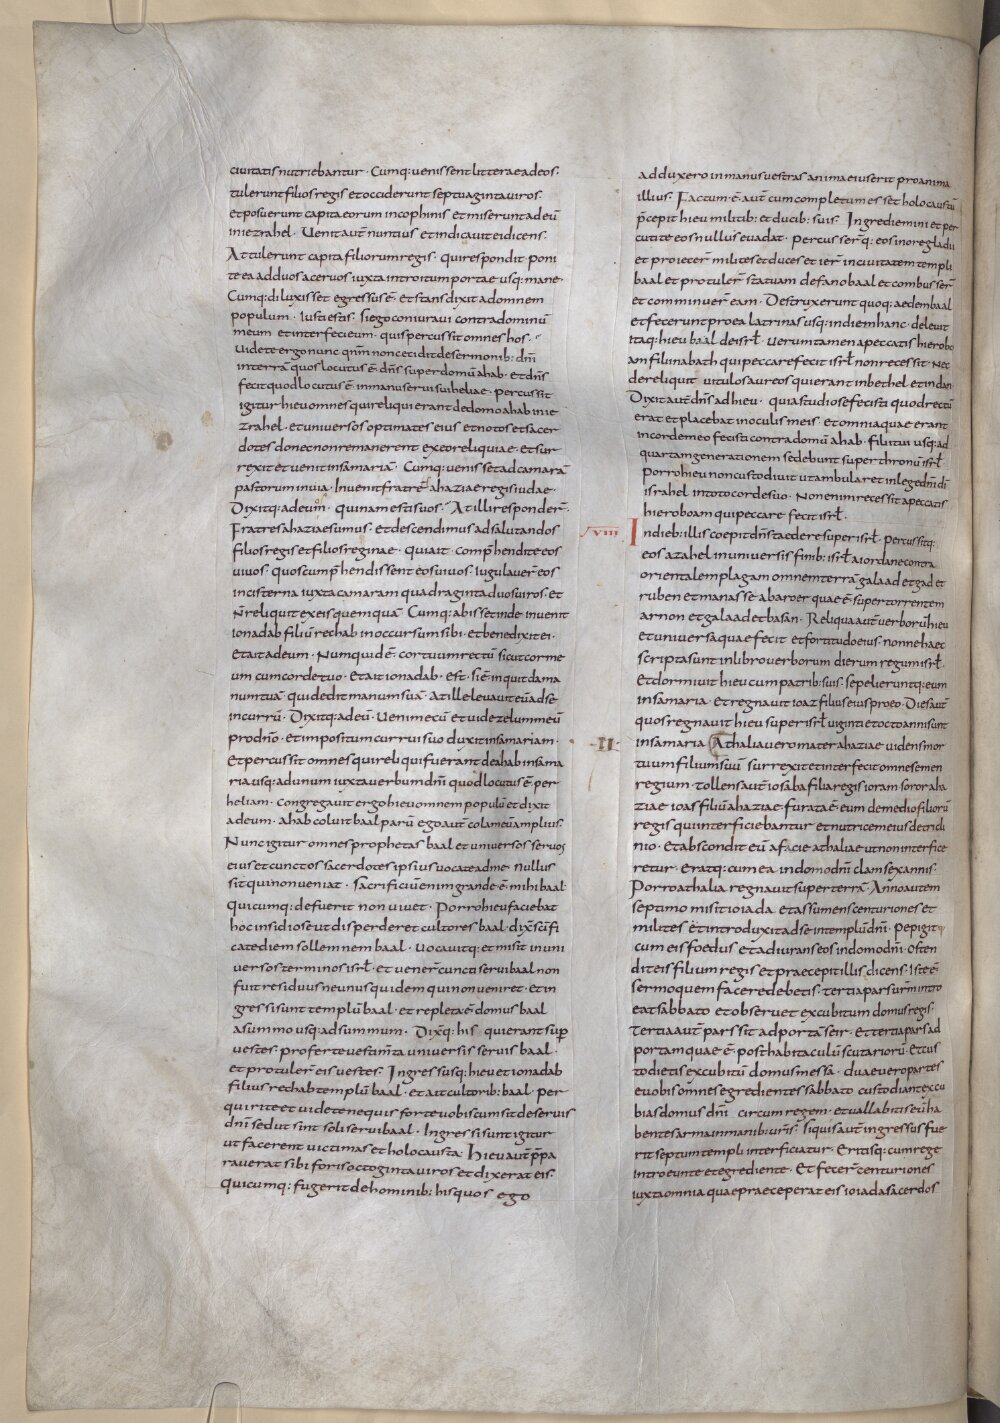 ciuitatis nutriebantur · Cumq: uenissent litterae ad eos ·
tulerunt filios regis et occiderunt septuaginta uiros ·
et posuerunt capita eorum in cophinis et miserunt ad eū
in iezrahel · Uenit aūt nuntius et indicauit ei dicens ·
Attulerunt capita filiorum regis · qui respondit · poni
te ea ad duos aceruos iuxta introitum portae usq: mane ·
Cumq: diluxisset egressus ē · et stans dixit ad omnem
populum · Iusti estis · si ego coniuraui contra dominū
meum et interfeci eum · quis percussit omnes hos ·
Uidete ergo nunc qm̄ non cecidit de sermonib: dn̄i
in terrā quos locutus ē · dn̄s super domū ahab · et dn̄s
fecit quod locutus ē · in manu serui sui heliae · percussit
igitur hieu omnes qui reliqui erant de domo ahab in ie
zrahel · et uniuersos optimates eius et notos et sacer
dotes donec non remanerent ex eo reliquiae · et sur
rexit et uenit in samariā · Cumq: uenisset ad camarā
pastorum in uia · Inuenit fratrē ahaziae regis iudae ·
Dixitq: ad eum · quinam estis uos · At illi responder̄ ·
Fratres ahaziae sumus · et descendimus ad salutandos
filios regis et filios reginae · qui ait · comp̄hendite eos
uiuos · quos cum p̄hendissent eos uiuos · iugulauer̄ eos
in cisterna iuxta camaram quadraginta duos uiros · et
n̄ reliquit ex eis quemquā · Cumq: abisset inde · inuenit
ionadab filiū rechab in occursum sibi · et benedixit ei ·
et ait ad eum · Numquid ē · cor tuum rectū sicut cor me
um cum corde tuo · et ait ionadab · est · si ē · inquit da ma
num tuā · qui dedit manum suā · At ille leuauit eū ad se
in currū · Dixitq: ad eū · Ueni mecū et uide zelum meū
pro dn̄o · et impositum currui suo duxit in samariam ·
Et percussit omnes qui reliqui fuerant de ahab in sama
ria usq: ad unum iuxta uerbum dn̄i quod locutus ē · per
heliam · congregauit ergo hieu omnem populū et dixit
ad eum · ahab coluit baal parū ego aut̄ colam eū amplius ·
Nunc igitur omnes prophetas baal et uniuersos seruos
eius et cunctos sacerdotes ipsius uocate ad me · nullus
sit qui non ueniat · sacrificiū enim grande ē · mihi baal ·
Quicumq: defuerit non uiuet · Porro hieu faciebat
hoc insidiose ut disperderet cultores baal · dix̄ sc̄ifi
cate diem sollemnem baal · uocauitq: et misit in uni
uersos terminos isrł · et uener̄ cuncti serui baal non
fuit residuus ne unus quidem qui non ueniret · et in
gressi sunt templū baal · et repleta ē domus baal
a summo usq: ad summum · Dix̄q: his qui erant sup̄
uestes · proferte uestim̄ta uniuersis seruis baal ·
et protuler̄ eis uestes · Ingressusq: hieu et ionadab
filius rechab templū baal · et ait cultorib: baal · per
quirite et uidete ne quis forte uobiscum sit de seruis
dn̄i sed ut sint soli serui baal · Ingressi sunt igitur
ut facerent uictimas et holocausta · Hieu aut̄ p̄pa
rauerat sibi foris octoginta uiros et dixerat eis ·
quicumq: fugerit de hominib: his quos ego
adduxero in manus uestras anima eius erit pro anima
illius · Factum · ē aut̄ cum completum esset holocaustū
p̄cepit hieu militib: et ducib: suis · Ingredimini et per
cutite eos nullus euadat · percusser̄q: eos in ore gladii
et proiecer̄ milites et duces et ier̄ in ciuitatem templi
baal et protuler̄ statuam de fano baal et combusser̄
et comminuer̄ eam · Destruxerunt quoq: aedem baal
et fecerunt pro ea latrinas usq: in diem hanc · deleuit
itaq: hieu baal de isrł · uerum tamen a peccatis hierobo
am filii nabath qui peccare fecit isrł non recessit · Nec
dereliquit uitulos aureos qui erant in bethel et in dan
Dixit aut̄ dn̄s ad hieu · quia studiose fecisti quod rectū
erat et placebat in oculis meis · et omnia quae erant
in corde meo fecisti contra domū ahab · filii tui usq: ad
quartam generationem sedebunt super thronū isrł
Porro hieu non custodiuit ut ambularet in lege dn̄i di
israhel in toto corde suo · Non enim recessit a peccatis
hieroboam qui peccare fecit isrł ·
VIII In dieb: illis coepit dn̄s taedere super isrł · percussitq:
eos azahel in uniuersis finib: isrł a iordane contra
orientalem plagam omnem terrā galaad et gad et
ruben et manasse ab aroer quae ē · super torrentem
arnon et galaad et basan · Reliqua aut̄ uerborū hieu
et uniuersa quae fecit et fortitudo eius · nonne haec
scripta sunt in libro uerborum dierum regum isrł ·
Et dormiuit hieu cum patrib: suis · sepelieruntq: eum
in samaria · et regnauit ioaz filius eius pro eo · Dies aut̄
quos regnauit hieu super isrł uiginti et octo anni sunt
II: in samaria Athalia uero mater ahaziae uidens mor
tuum filium suū surrexit et interfecit omne semen
regium · tollens aut̄ iosaba filia regis ioram soror aha
ziae ioas filiū ahaziae · furata ē · eum de medio filiorū
regis qui interficiebantur et nutricem eius de tricli
nio · et abscondit eū a facie athaliae ut non interfice
retur · Eratq: cum ea in domo dn̄i clam sex annis ·
Porro athalia regnauit super terrā · Anno autem
septimo misit ioiada et assumens centuriones et
milites · et introduxit ad se in templū dn̄i · pepigitq
cum eis foedus et adiurans eos in domo dn̄i · Osten
dit eis filium regis et praecepit illis dicens · Iste ē
sermo quem facere debetis · tertia pars urm̄ intro
eat sabbato et obseruet excubitum domus regis ·
Tertia aut̄ pars sit ad portā seir · et tertia pars ad
portam quae ē · post habitaculū scutariorū · et cus
todietis excubitū domus messa · duae uero partes
e uobis om̄nes egredientes sabbato custodiant excu
bias domus dn̄i circum regem · et uallabitis eū ha
bentes arma in manib: ur̄is · si quis aut̄ ingressus fue
rit septum templi interficiatur · Eritisq: cum rege
introeunte et egrediente · Et fecer̄ centuriones
iuxta omnia quae praeceperat eis ioiada sacerdos